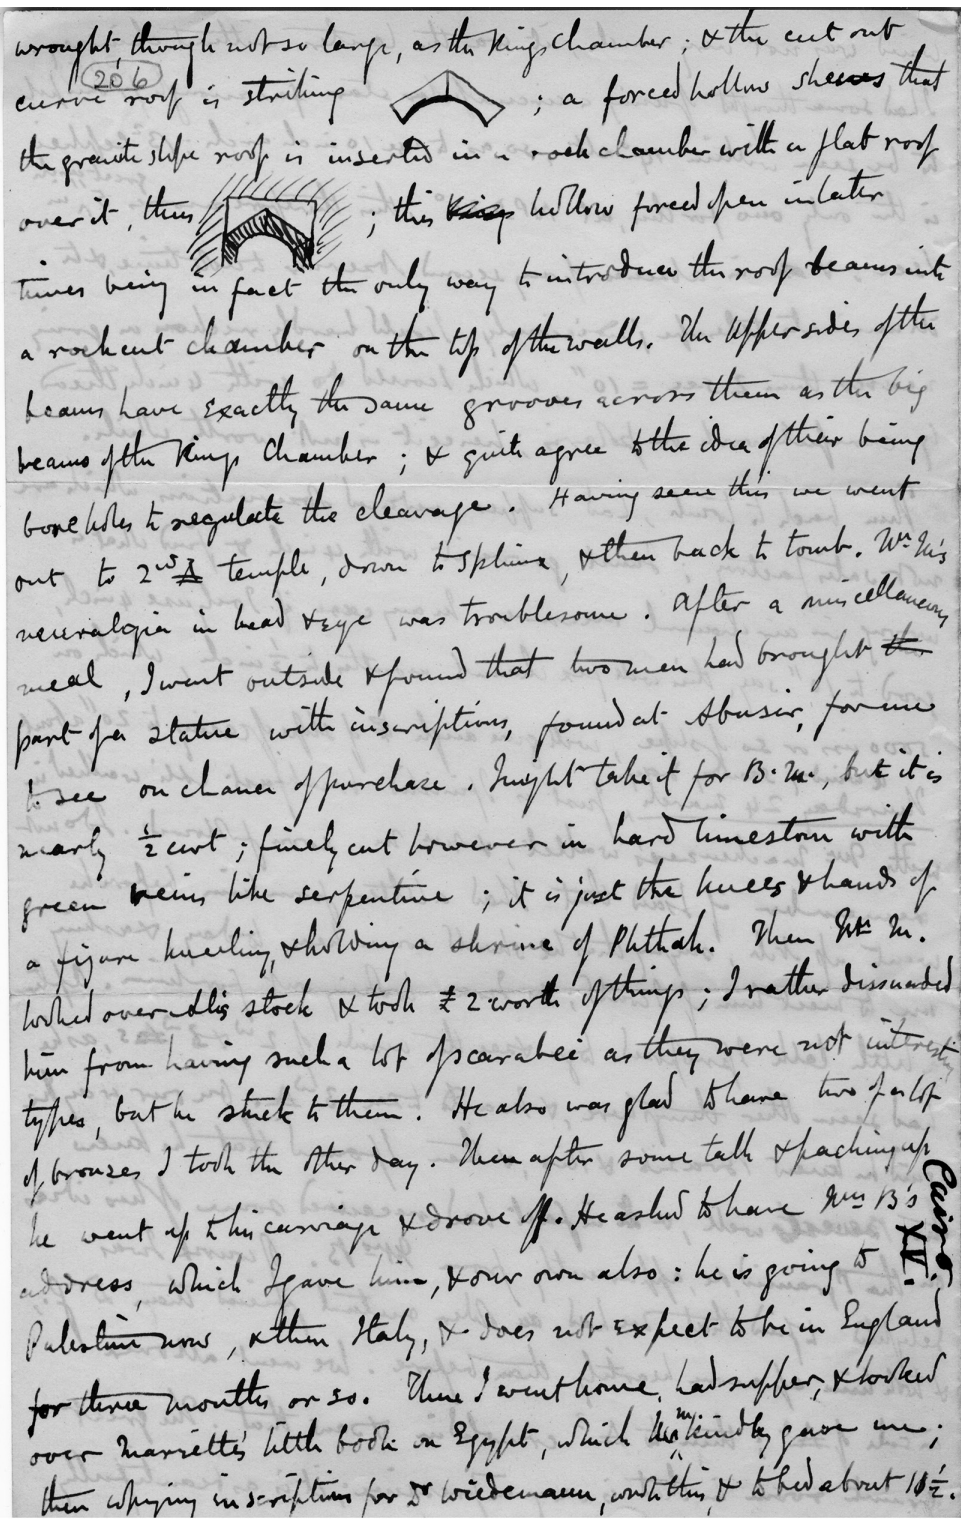 wrought though not so large, as the Kings chamber ; & the cut out
206
curve roof is striking ; a forced hollow shews that
the granite slope roof is inserted in a rock chamber with a flat roof
over it, thus ; this hollow forced open in later
times being in fact the only way to introduce the roof beams into
a rock cut chamber on the top of the walls. The upper sides of the
beams have exactly the same grooves across them as the big
beams of the Kings Chamber ; & quite agree to the idea of their being
bore holes to regulate the cleavage. Having seen this we went
out to 2nd temple, down to Sphinx, & then back to tomb. Mr. M's
neuralgia in head & eye was troublesome. After a miscellaneous
meal, I went outside & found that two men had brought the
part of a statue with inscriptions, found at Abusir, for me
to see on chance of purchase. I might take it for B.M., but it is
nearly ½ cwt ; finely cut however in hard limestone with
green veins like serpentine ; it is just the knees & hands of
a figure kneeling, & holding a shrine of Phthah. Then Mr M.
looked over Ali's stock & took £2 worth of things ; I rather dissuaded
him from having such a lot of scarabei as they were not interesting
types, but he stuck to them. He also was glad to have two of a lot
of bronzes I took the other day. Then after some talk & packing up
he went up to his carriage & drove off. He asked to have Mrs B's
address, which I gave him, & our own also : he is going to
Palestine now, & then Italy, & does not expect to be in England
for three months or so. Then I went home, had supper, & looked
over Mariette's little book on Egypt, which Mr M. kindly gave me ;
then copying inscriptions for Dr Wiedemann, wrote this, & to bed about 10½.
Cairo.
XV.